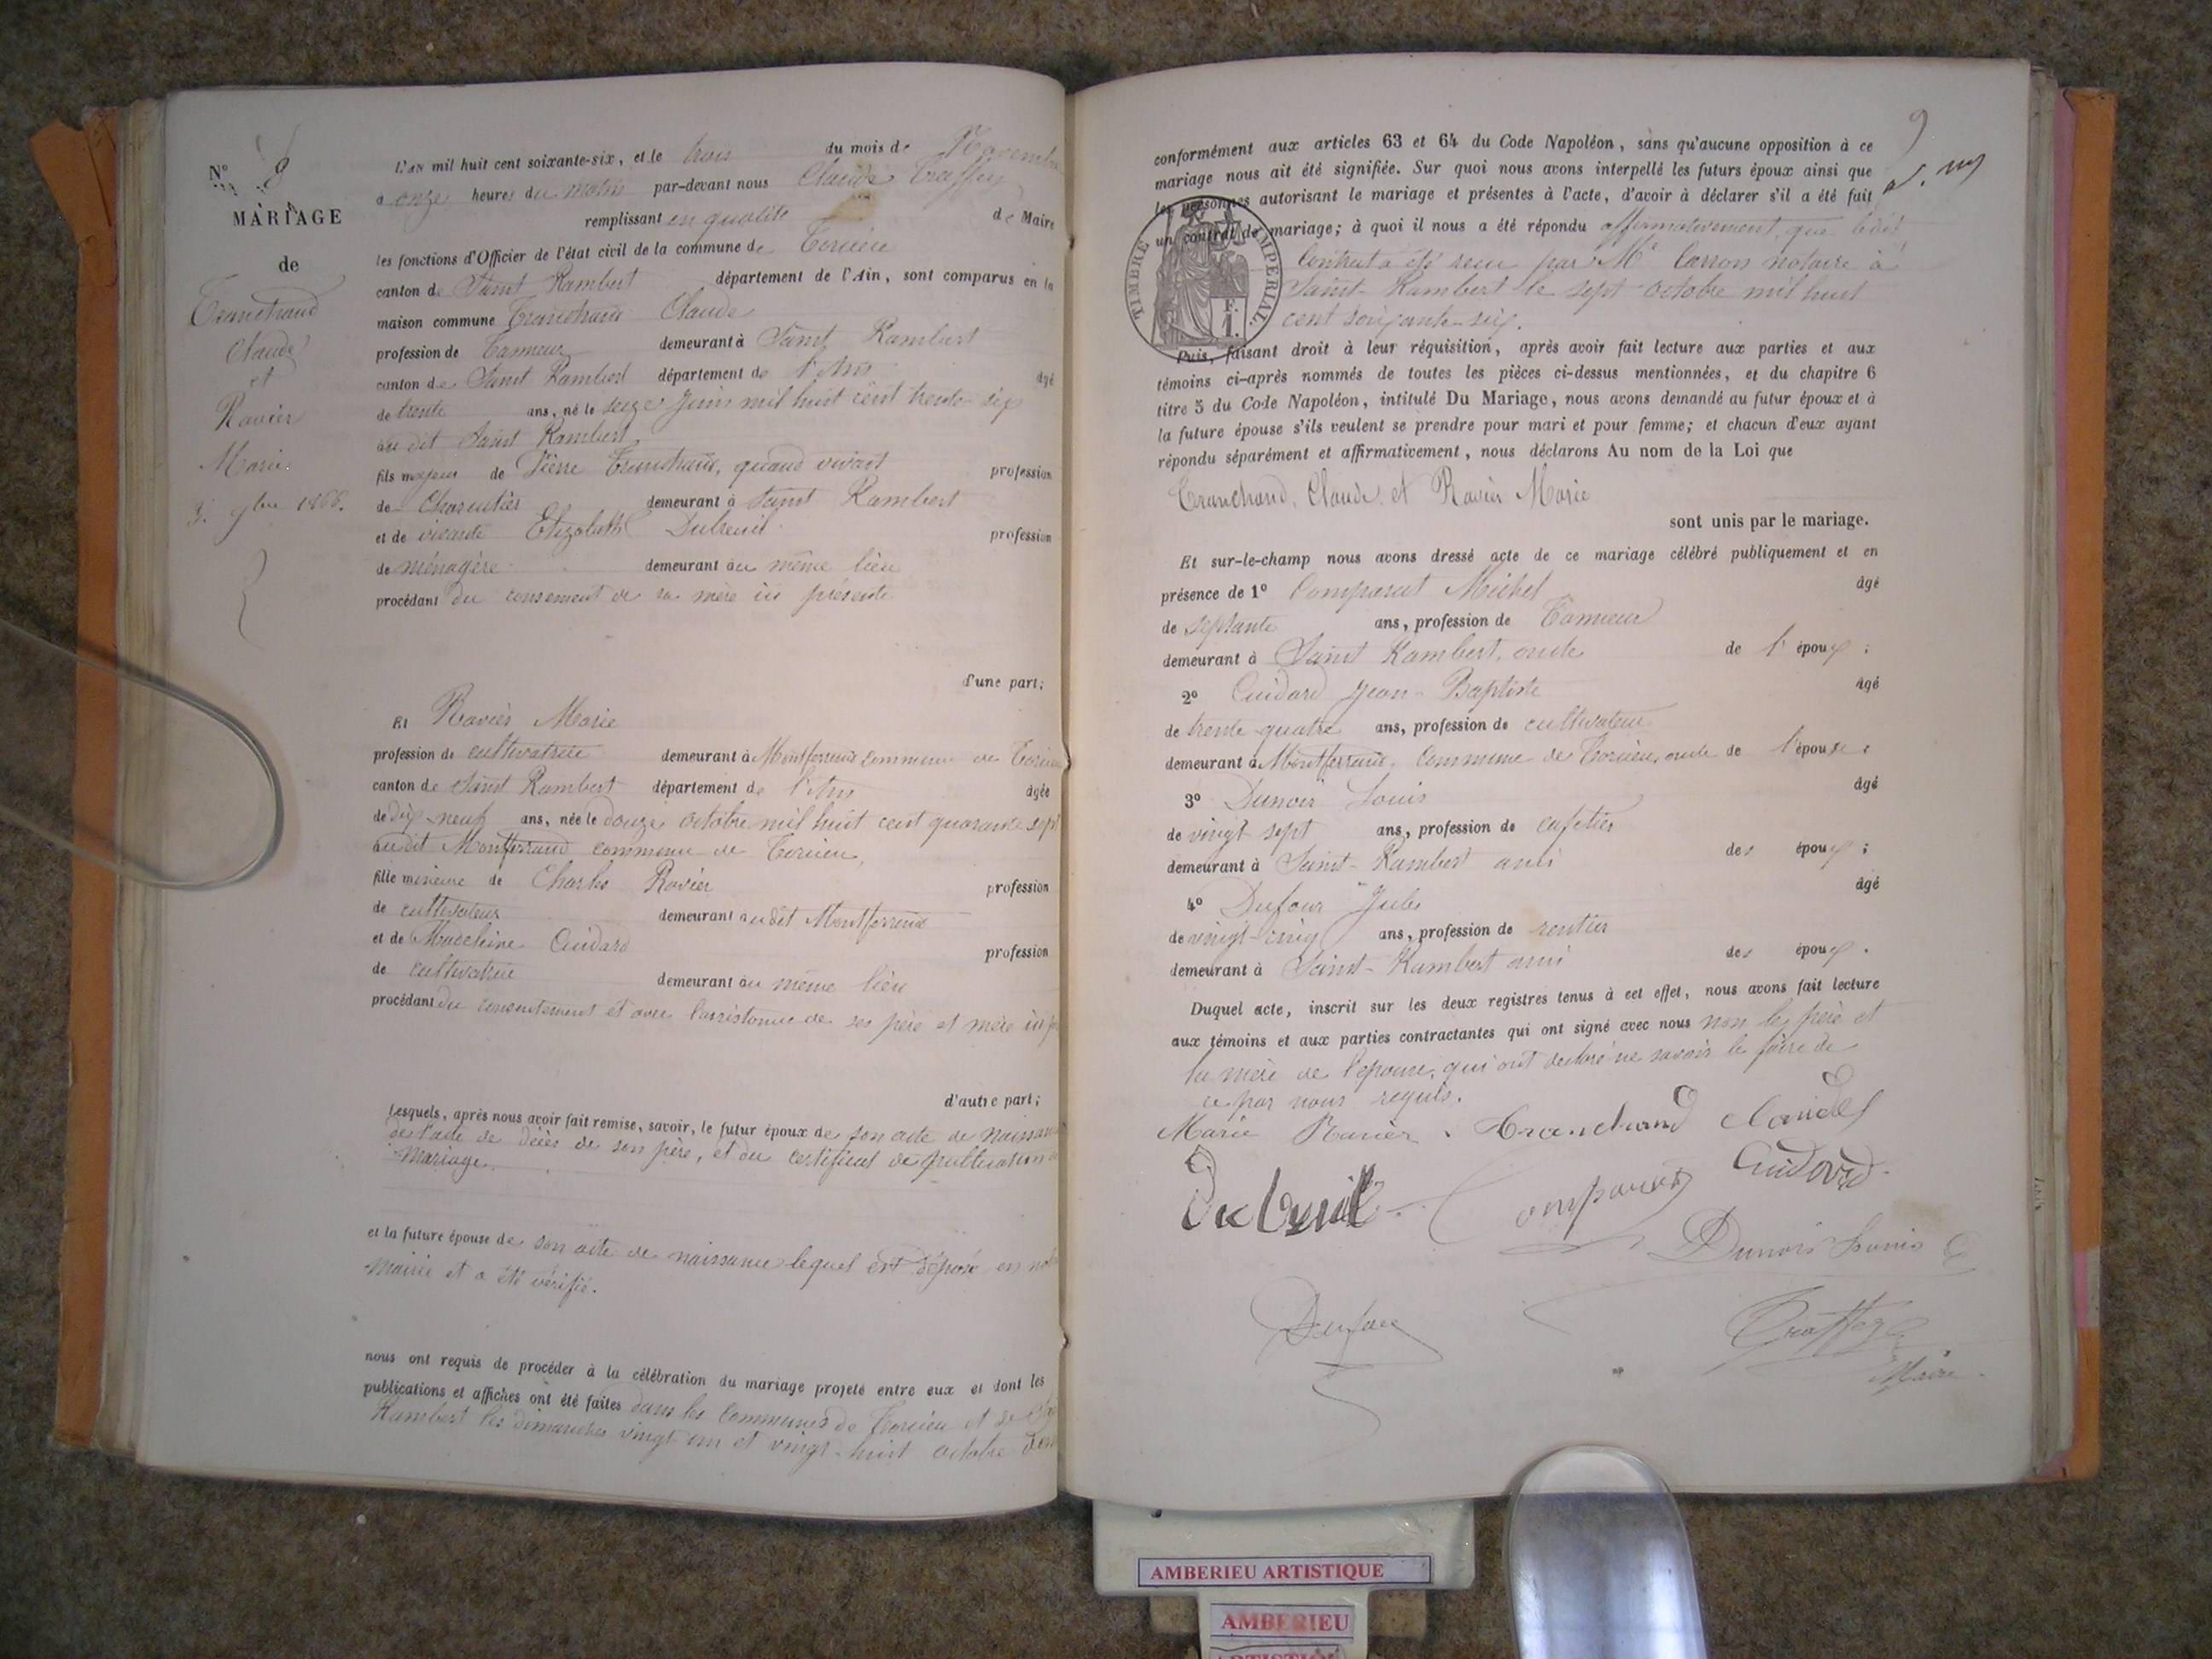 N° 9
MARIAGE
de
Tranchand
Claude
et
Ravier
Marie
3. 9bre 1866.
L'an mil huit cent soixante-six, et le trois du mois de Novembre
à onze heures du matin par-devant nous Claude Traffey
remplissant en qualité de Maire
les fonctions d'Officier de l'état civil de la commune de Torcieu
canton de Saint Rambert département de l'Ain, sont comparus en la
maison commune Tranchand Claude
profession de Tanneur demeurant à Saint Rambert
canton de Saint Rambert département de l'Ain âgé
de trente ans, né le seize Juin mil huit cent trente-six
au dit Saint Rambert
fils majeur de Pierre Tranchand, quand vivait profession
de Charcutier demeurant à Saint Rambert
et de vivante Elizabeth Dubreuil profession
de ménagère demeurant au même lieu
procédant du consement de sa mère ici présente
d'une part;
Et Ravier Marie
profession de cultivatrice demeurant à Montferrand commune de Torcieu
canton de Saint Rambert département de l'Ain âgée
de dix-neuf ans, née le douze octobre mil huit cent quarante sept
audit Montferrand commune de Torcieu,
fille mineure de Charles Ravier profession
de cultivateur demeurant audit Montferrand
et de Madeleine Cuidard profession
de cultivatrice demeurant au même lieu
procédant du consentement et avec l'assistance de ses père et mère ici
d'autre part;
Lesquels, après nous avoir fait remise, savoir, le futur époux de son acte de naissance
de l'acte de décès de son père, et du certificat de publication de
mariage
et la future épouse de son acte de naissance lequel est déposé en notre
mairie et a été vérifié.
nous ont requis de procéder à la célébration du mariage projeté entre eux et dont les
publications et affiches ont été faites dans les communes de Torcieu et de St
Rambert les dimanches vingt-un et vingt-huit octobre
9
conformément aux articles 63 et 64 du Code Napoléon, sans qu'aucune opposition à ce
mariage nous ait été signifiée. Sur quoi nous avons interpellé les futurs époux ainsi que
les personnes autorisant le mariage et présentes à l'acte, d'avoir à déclarer s'il a été fait
un contrat de mariage; à quoi il nous a été répondu affirmativement, que ledit
Contrat a été reçu par Me Carron notaire à
Saint-Rambert le sept octobre mil huit
cent soixante-six.
TIMBRE IMPERIAL.
F.
1.
Puis, faisant droit à leur réquisition, après avoir fait lecture aux parties et aux
témoins ci-après nommés de toutes les pièces ci-dessus mentionnées, et du chapitre 6
titre 5 du Code Napoléon, intitulé Du Mariage, nous avons demandé au futur époux et à
la future épouse s'ils veulent se prendre pour mari et pour femme; et chacun d'eux ayant
répondu séparément et affirmativement, nous déclarons Au nom de la Loi que
Tranchand, Claude et Ravier Marie
sont unis par le mariage.
Et sur-le-champ nous avons dressé acte de ce mariage célébré publiquement et en
présence de 1° Comparat Michel âgé
de septante ans, profession de Tanneur
demeurant à Saint Rambert, oncle de l'époux;
2° Cuidard Jean-Baptiste âgé
de trente-quatre ans, profession de cultivateur
demeurant à Montferrand, commune de Torcieu, oncle de l'épouse;
3° Dunoir Louis âgé
de vingt-sept ans, profession de cafetier
demeurant à Saint-Rambert ami des époux;
4° Dufour Jules âgé
de vingt-cinq ans, profession de rentier
demeurant à Saint-Rambert ami des époux.
Duquel acte, inscrit sur les deux registres tenus à cet effet, nous avons fait lecture
aux témoins et aux parties contractantes qui ont signé avec nous non le père et
la mère de l'épouse, qui ont déclaré ne savoir le faire de
ce par nous requis.
Marie Ravier. Tranchand Claude
Dubreuil Comparat Cuidard
Dunoir Louis
Dufour Traffey
Maire
AMBERIEU ARTISTIQUE
AMBERIEU
ARTISTIQUE